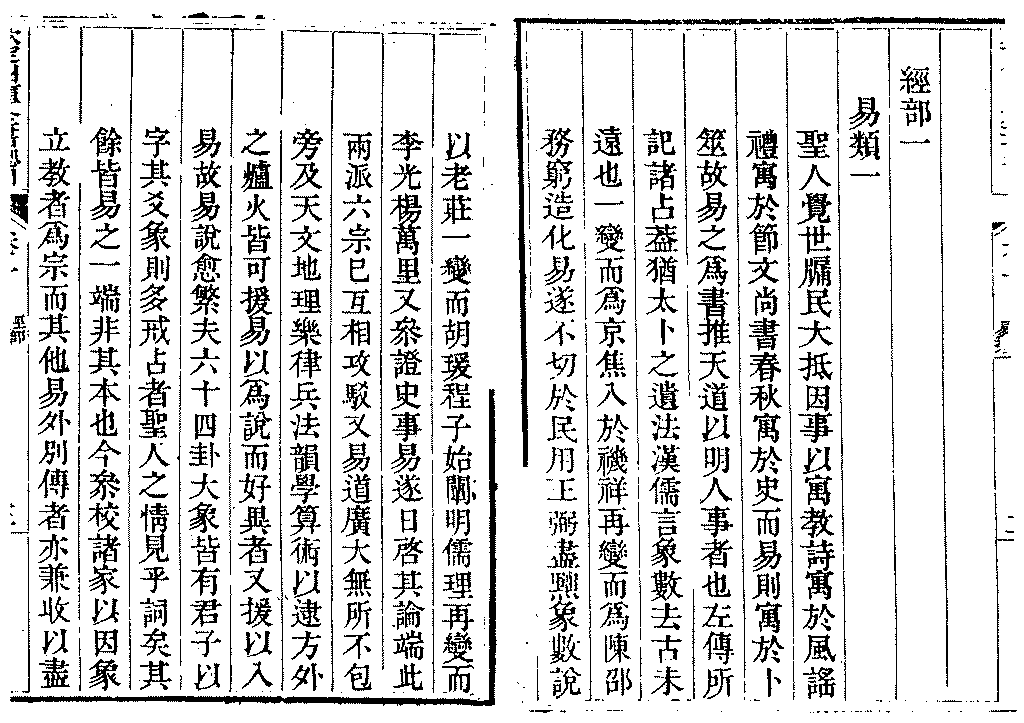 經部一
易類一
聖人覺世牖民大抵因事以寓教詩寓於風謠
禮寓於節文尚書春秋寓於史而易則寓於卜
筮故易之爲書推天道以明人事者也左傳所
記諸占葢猶太卜之遺法漢儒言象數去古未
遠也一變而爲京焦入於禨祥再變而爲陳邵
務窮造化易遂不切於民用王弼盡黜象數說
以老莊一變而胡瑗程子始闡明儒理再變而
李光楊萬里又叅證史事易遂日啓其論端此
兩派六宗已互相攻駁又易道廣大無所不包
旁及天文地理樂律兵法韻學算術以逮方外
之爐火皆可援易以爲說而好異者又援以入
易故易說愈繁夫六十四卦大象皆有君子以
字其爻象則多戒占者聖人之情見乎詞矣其
餘皆易之一端非其本也今叅校諸家以因象
立教者爲宗而其他易外別傳者亦兼收以盡